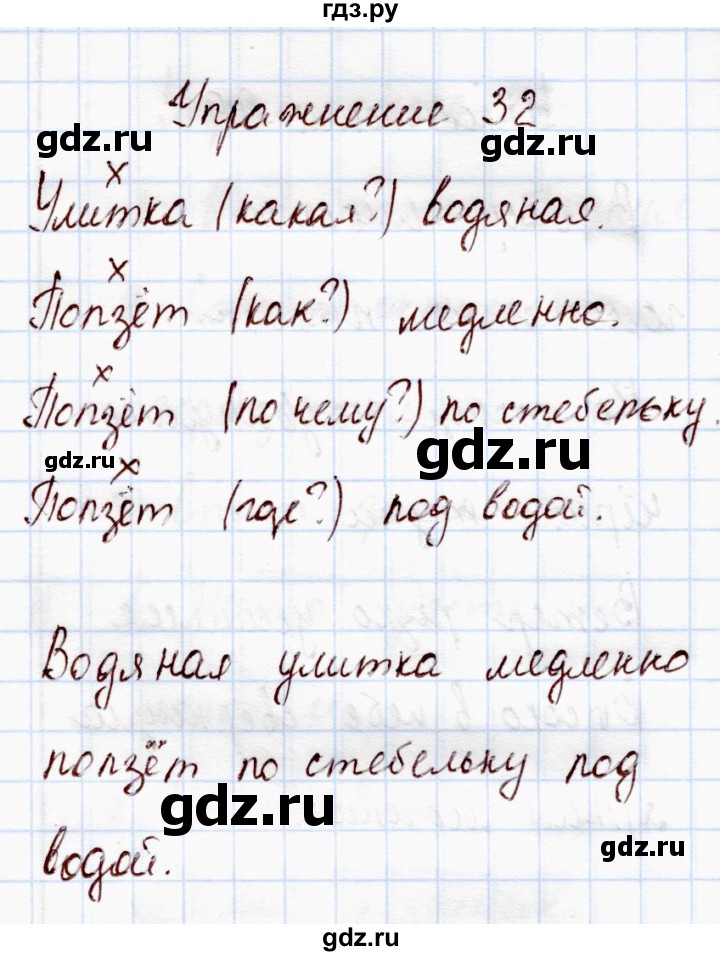 гдз.ру
Упражнение 32
gdz.ru
gdz.ru
х
Улитка (какая?) водяная.
х
Ползёт (как?) медленно.
х
Ползёт (по чему?) по стебельку.
gdz.ru
gdz.ru
х
Ползёт (где?) под водой.
Водяная улитка медленно
ползёт по стебельку под
gdz.ru
gdz.ru
водой.
gdz.ru